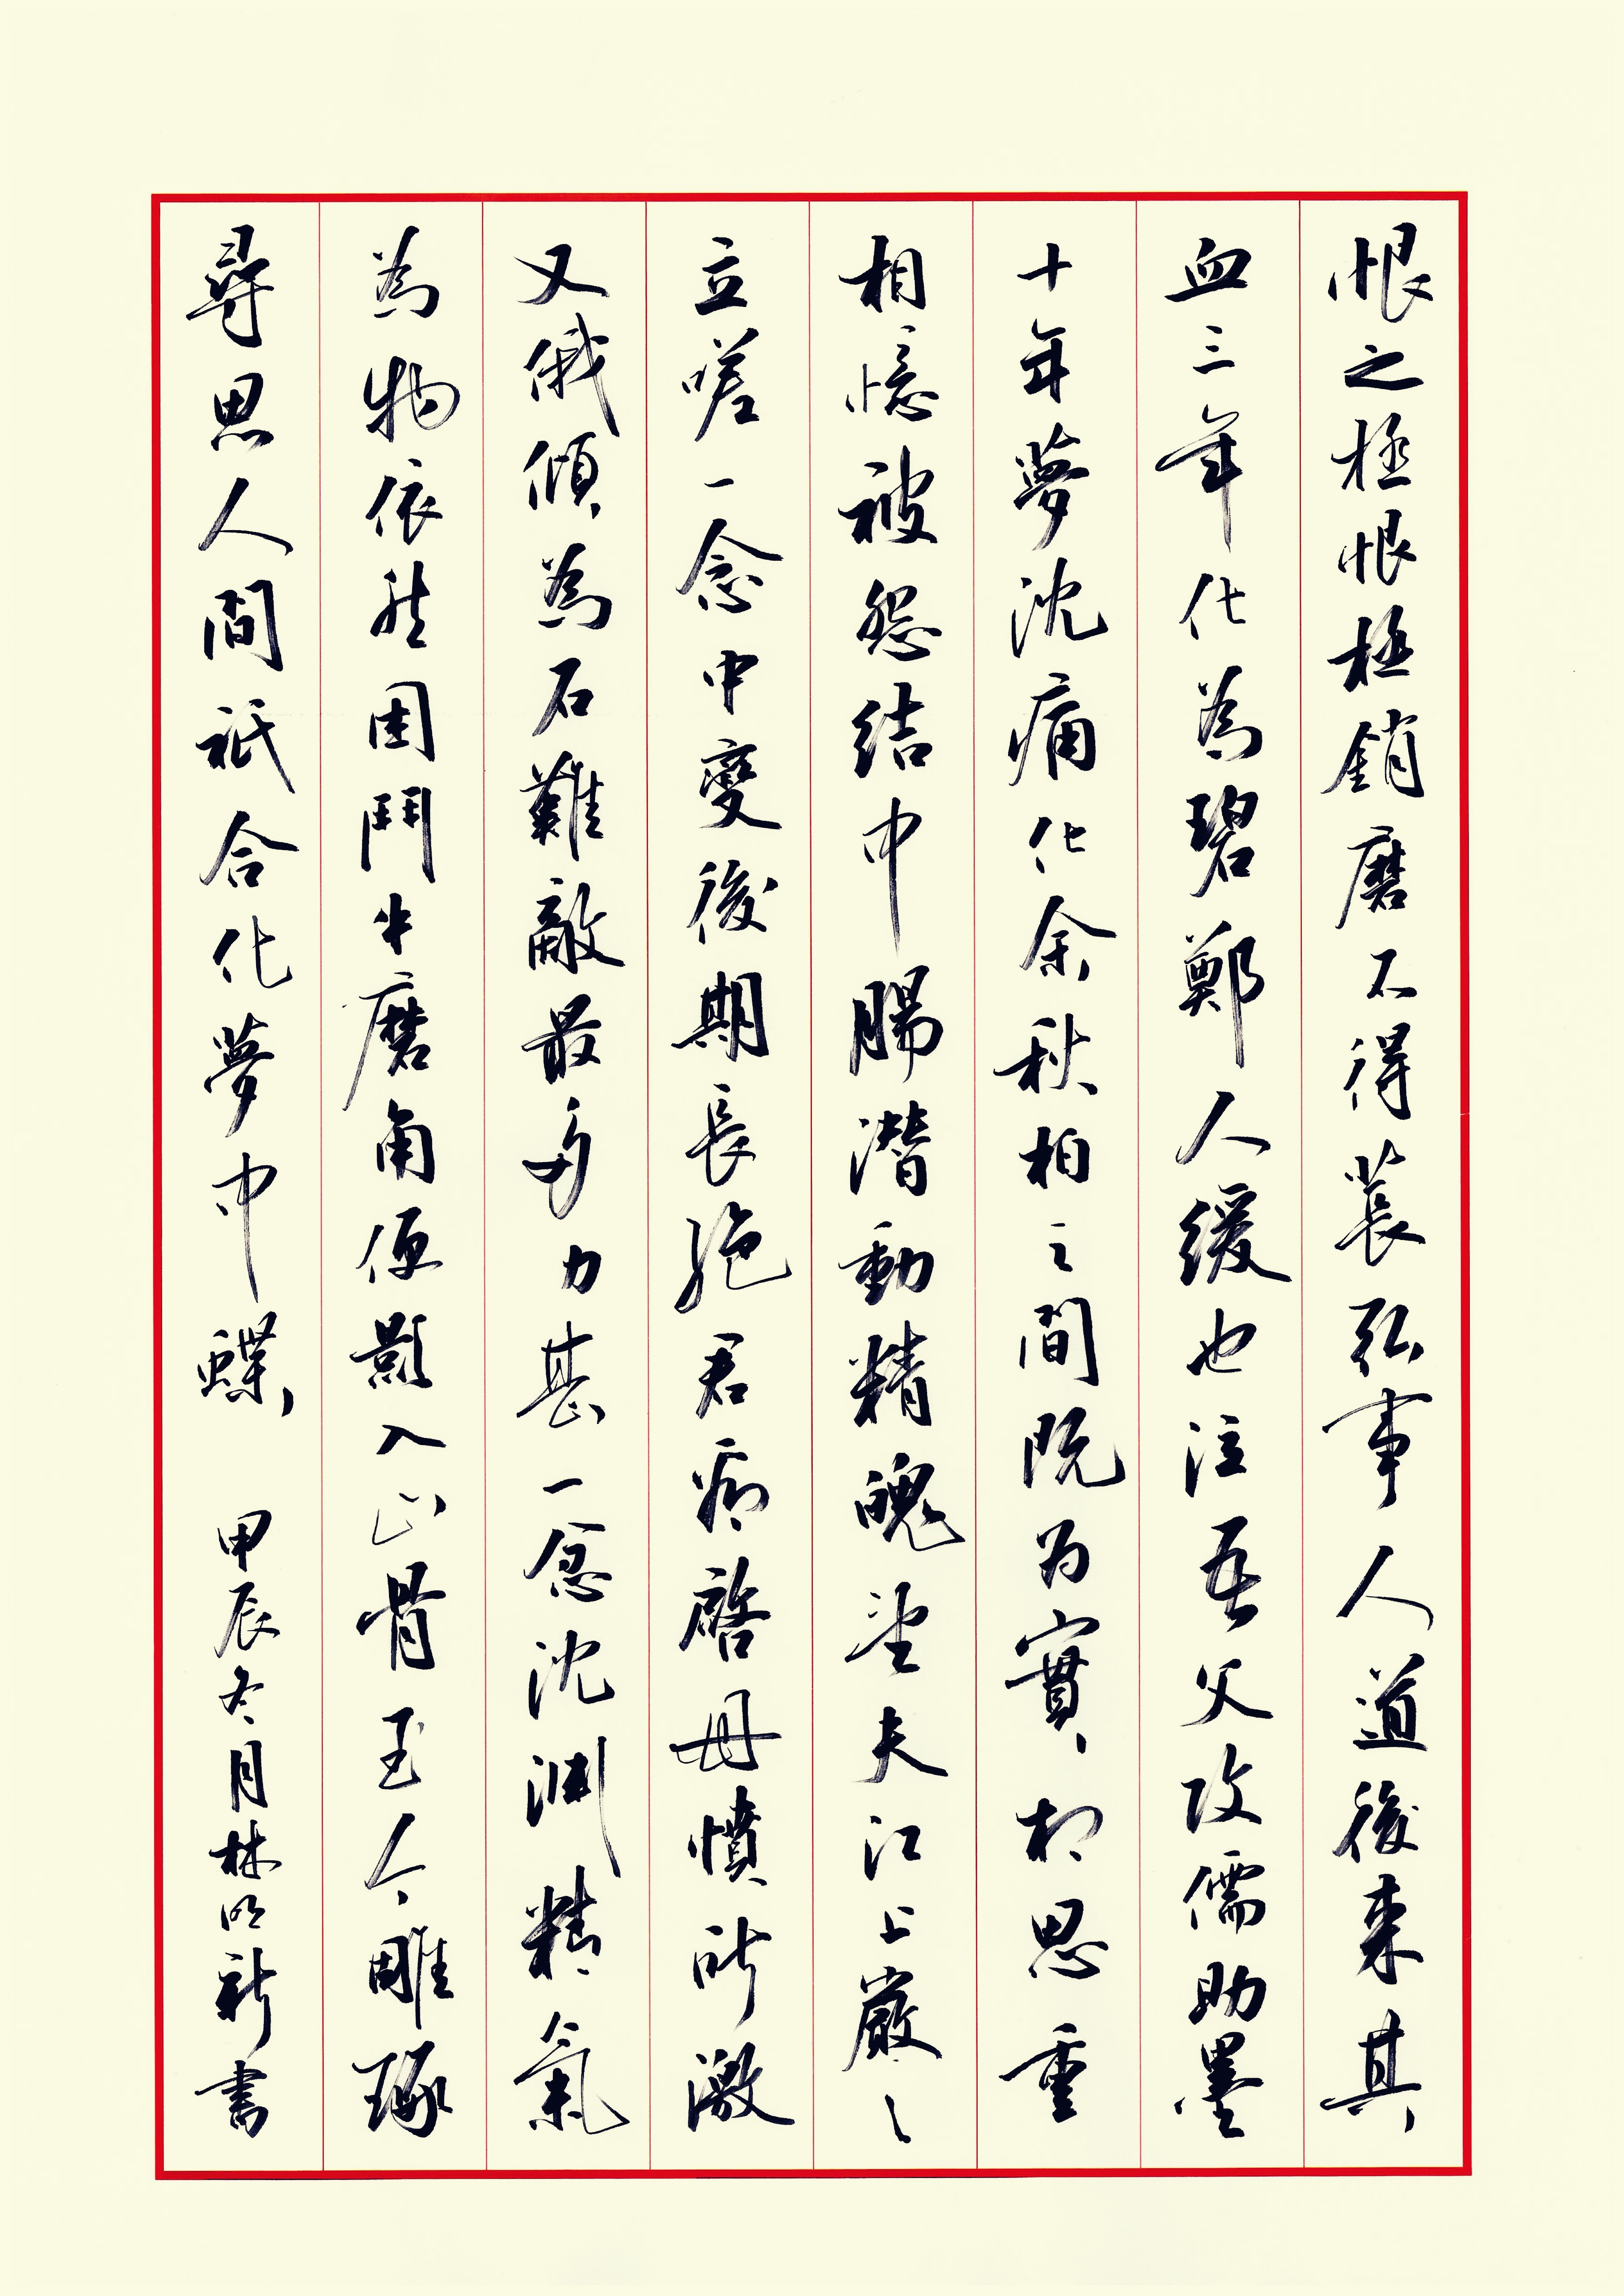 恨之極恨極銷磨不得萇弘事人道後來其
血三年化為碧鄭人緩也泣吾父攻儒助墨
十年夢沈痛化余秋柏之間既为實相思重
相憶被怨結中腸潛動精魄望夫江上巖々
立嗟一念中變後期長絕君看啓母憤所激
又俄傾為石難敵最多力甚一忿沈淵精氣
為物依然困鬥牛磨角便影入山骨至今雕琢
尋思人間祇合化夢中蝶 甲辰冬月林明新書